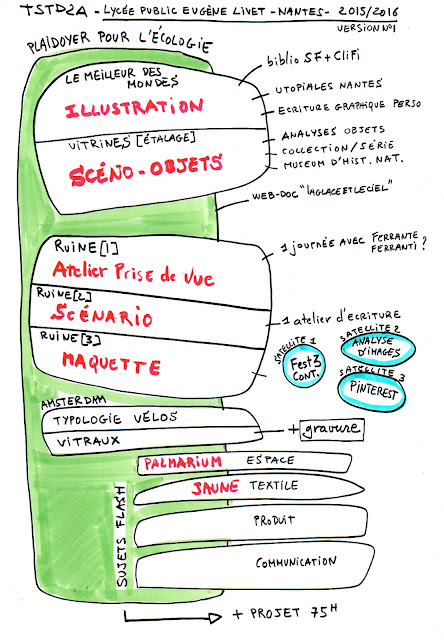 TSTD2A - LYCÉE PUBLIC EUGÈNE LIVET - NANTES - 2015/2016
VERSION N°1
PLAIDOYER POUR L'ÉCOLOGIE
biblio SF + CliFi
LE MEILLEUR DES
MONDES
ILLUSTRATION
UTOPIALES NANTES
ECRITURE GRAPHIQUE PERSO
VITRINES [ÉTALAGE]
SCÉNO-OBJETS
ANALYSES OBJETS
COLLECTION/SÉRIE
MUSEUM D'HIST. NAT.
WEB-DOC "LAGLACEETLECIEL"
RUINE[1]
Atelier Prise de vue
1 journée avec FERRANTE
FERRANTI?
RUINE[2]
SCÉNARIO
1 atelier d'ecriture
RUINE[3]
MAQUETTE
SATELLITE 1
Fest3
CONT.
SATELLITE 2
ANALYSE
D'IMAGES
SATELLITE 3
PINTEREST
AMSTERDAM
TYPOLOGIE VÉLOS
VITRAUX
+ gravure
SUJETS FLASH
PALMARIUM ESPACE
JAUNE TEXTILE
PRODUIT
COMMUNICATION
+ PROJET 75H